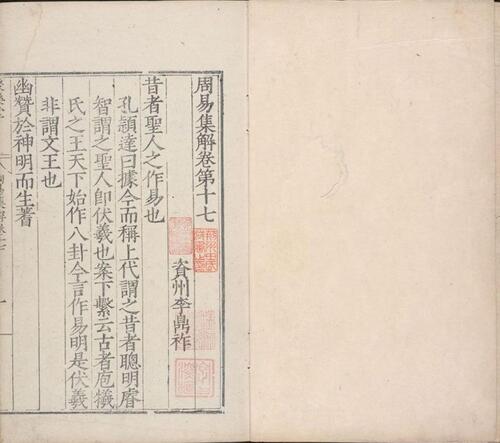 周易集解卷第十七
資州李鼎祚
昔者聖人之作易也
孔頴達曰據今而稱上代謂之昔者聰明睿
智謂之聖人即伏羲也案下繫云古者庖犧
氏之王天下始作八卦今言作易明是伏羲
非謂文王也
幽贊於神明而生蓍